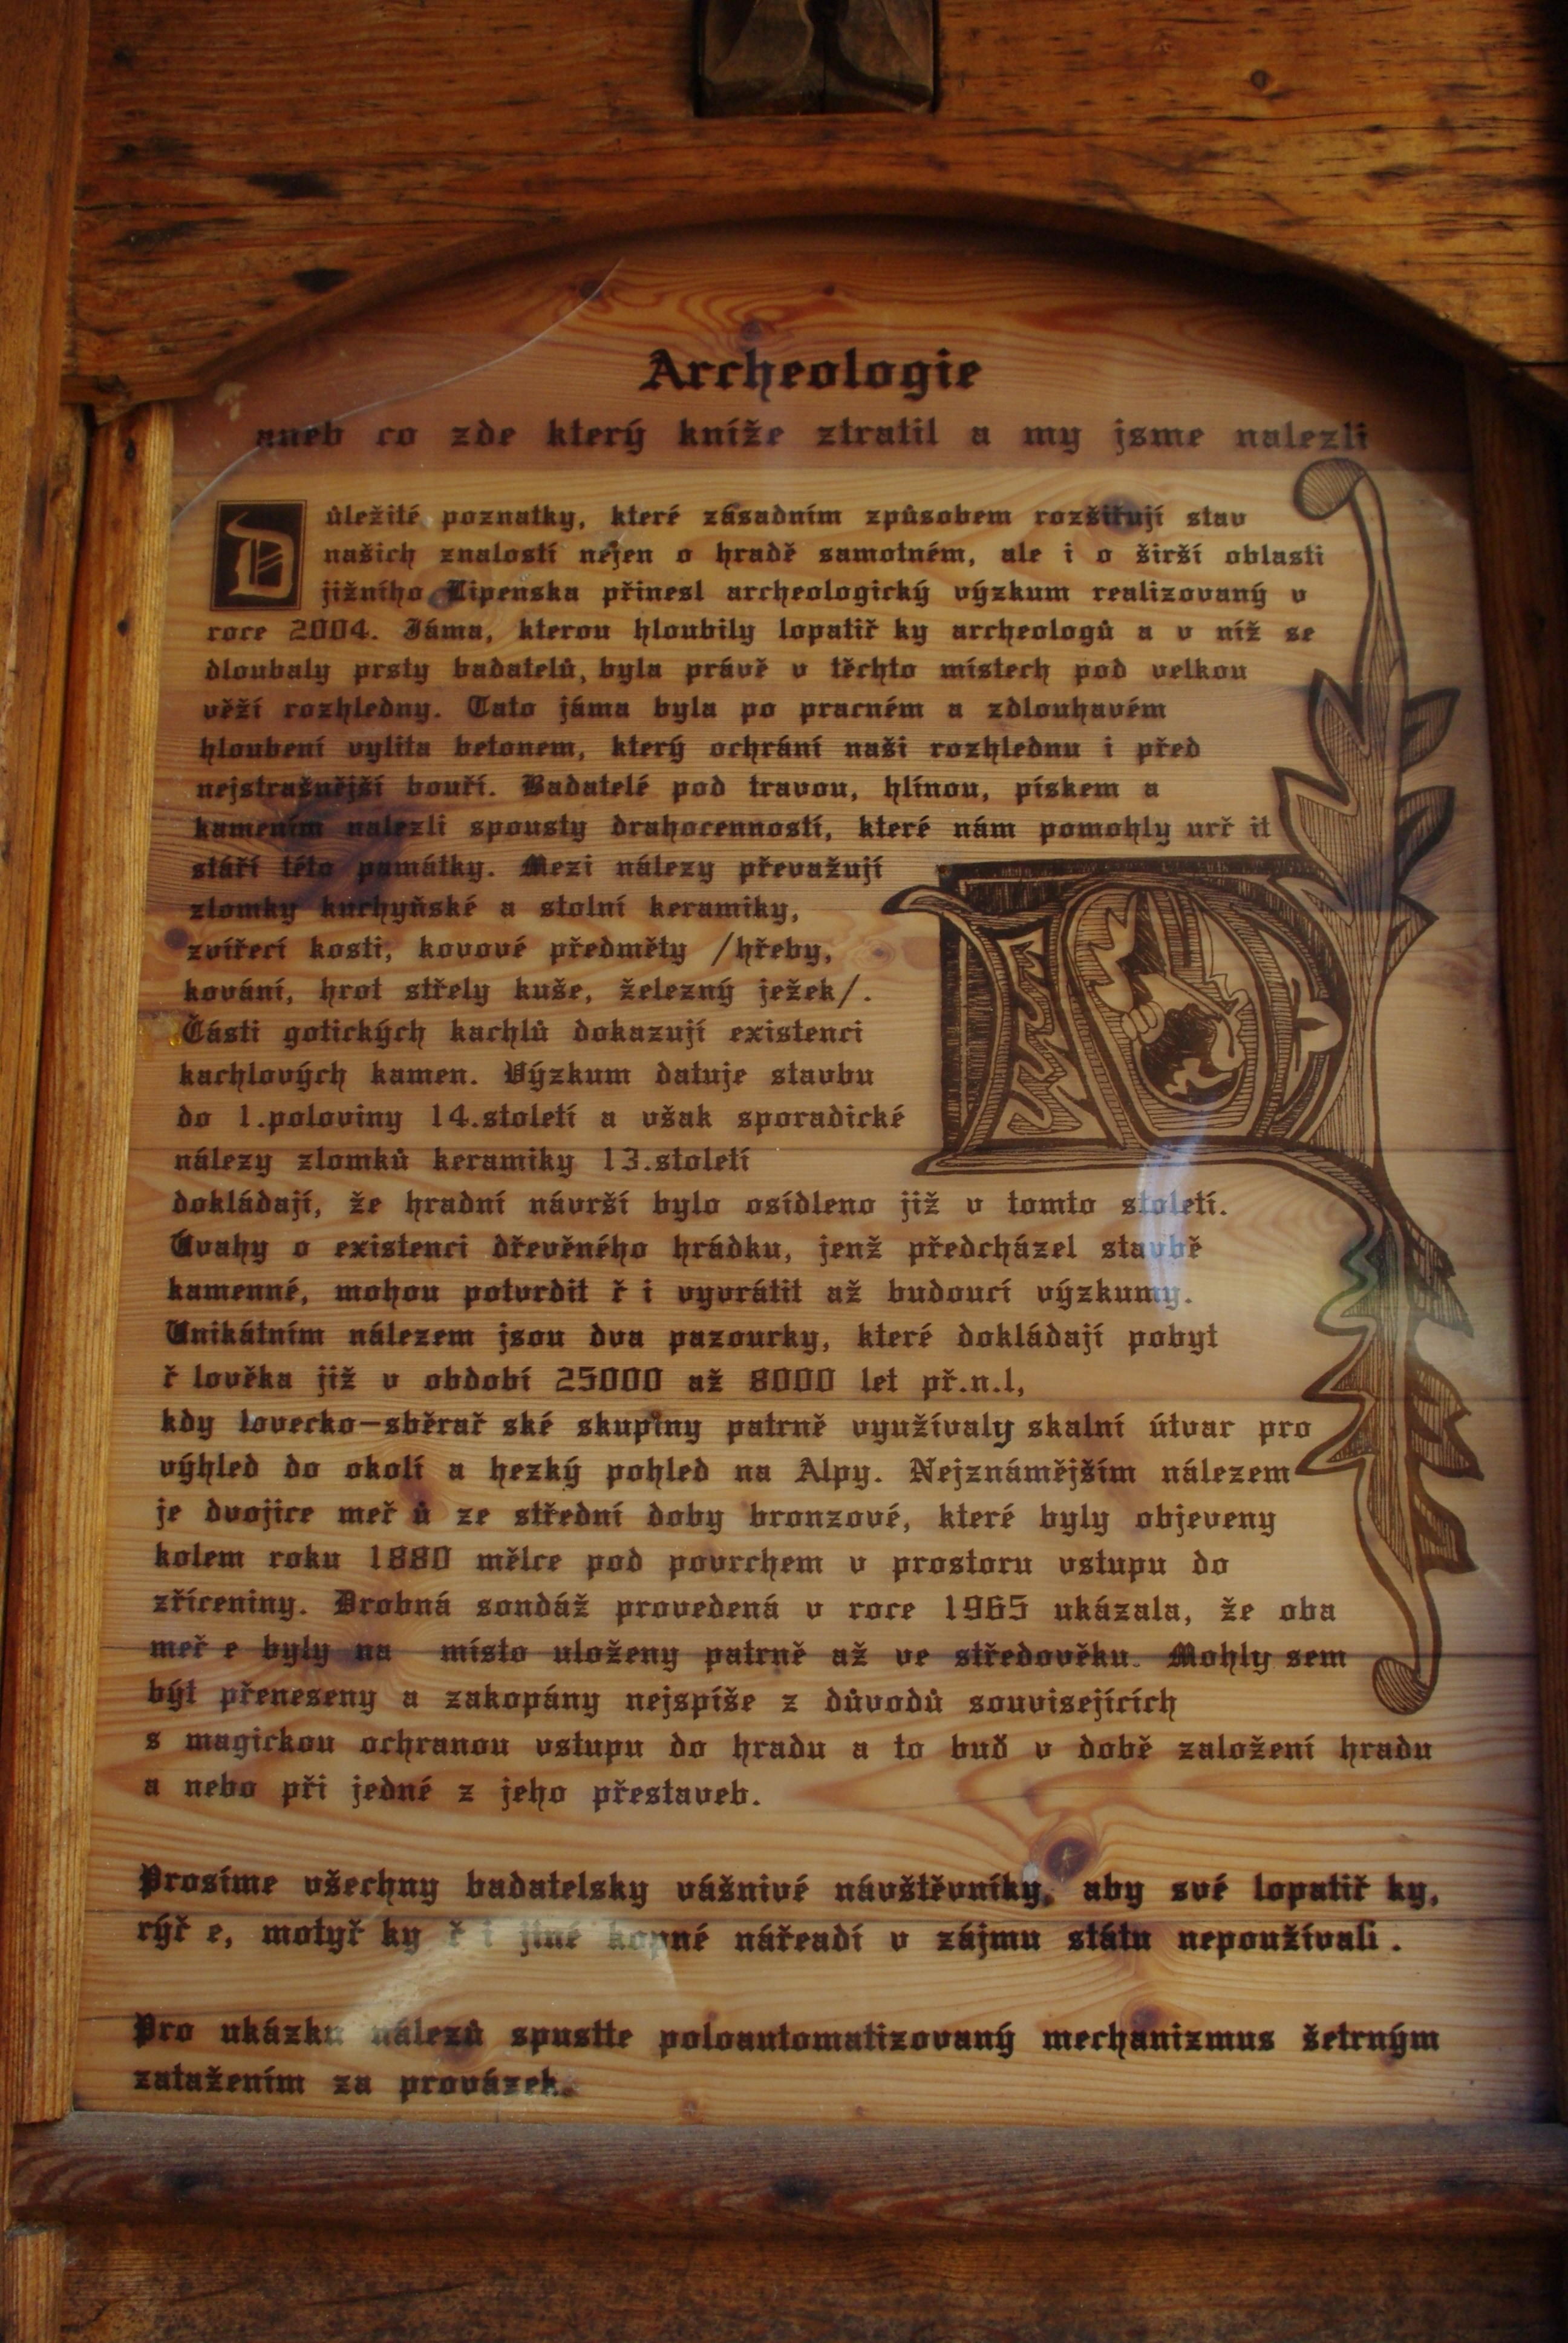 Archeologie
aneb co zde který kníže ztratil a my jsme nalezli
Důležité poznatky, které zásadním způsobem rozšiřují stav
našich znalostí nejen o hradě samotném, ale i o širší oblasti
jižního Lipenska přinesl archeologický výzkum realizovaný v
roce 2004. Jáma, kterou hloubily lopatiř ky archeologů a v níž se
dloubaly prsty badatelů, byla právě v těchto místech pod velkou
věží rozhledny. Tato jáma byla po pracném a zdlouhavém
hloubení vylita betonem, který ochrání naši rozhlednu i před
nejstrašnější bouří. Badatelé pod travou, hlínou, pískem a
kamením nalezli spousty drahocenností, které nám pomohly urř it
stáří této památky. Mezi nálezy převažují
zlomky kuchyňské a stolní keramiky,
zvířecí kosti, kovové předměty /hřeby,
kování, hrot střely kuše, železný ježek/.
Části gotických kachlů dokazují existenci
kachlových kamen. Výzkum datuje stavbu
do 1.poloviny 14.století a však sporadické
nálezy zlomků keramiky 13.století
dokládají, že hradní návrší bylo osídleno již v tomto století.
Úvahy o existenci dřevěného hrádku, jenž předcházel stavbě
kamenné, mohou potvrdit ř i vyvrátit až budoucí výzkumy.
Unikátním nálezem jsou dva pazourky, které dokládají pobyt
ř lověka již v období 25000 až 8000 let př.n.l,
kdy lovecko-sběrař ské skupiny patrně využívaly skalní útvar pro
výhled do okolí a hezký pohled na Alpy. Nejznámějším nálezem
je dvojice meř ů ze střední doby bronzové, které byly objeveny
kolem roku 1880 mělce pod povrchem v prostoru vstupu do
zříceniny. Drobná sondáž provedená v roce 1965 ukázala, že oba
meř e byly na místo uloženy patrně až ve středověku. Mohly sem
být přeneseny a zakopány nejspíše z důvodů souvisejících
s magickou ochranou vstupu do hradu a to buď v době založení hradu
a nebo při jedné z jeho přestaveb.
Prosíme všechny badatelsky vášnivé návštěvníky, aby své lopatiř ky,
rýř e, motyř ky ř i jiné kopné nářeadí v zájmu státu nepoužívali.
Pro ukázku nálezů spusťte poloautomatizovaný mechanizmus šetrným
zatažením za provázek.